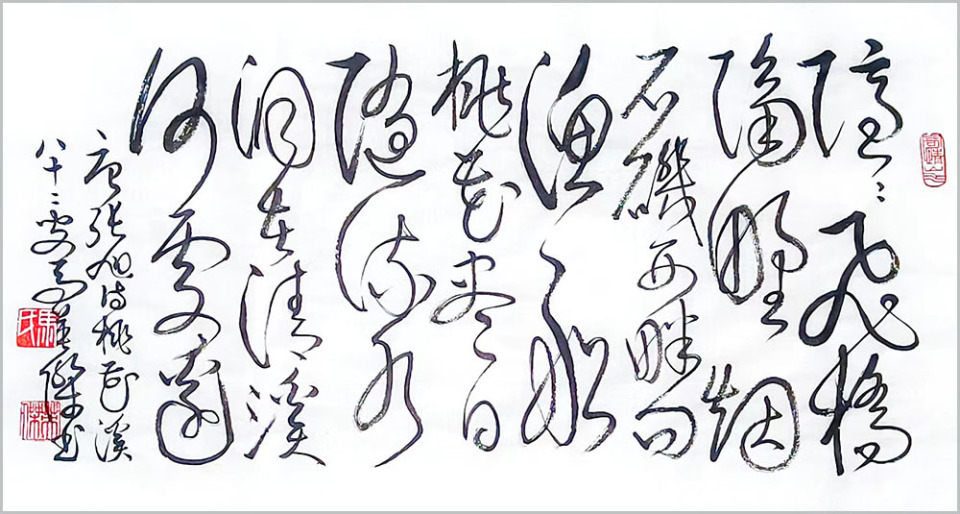 隱〻飛橋
隔野烟
石磯西畔問
漁船
桃花盡日
隨流水
洞在清溪
何處邊
唐張旭詩桃花溪
八十二叟馬傑書
馬氏